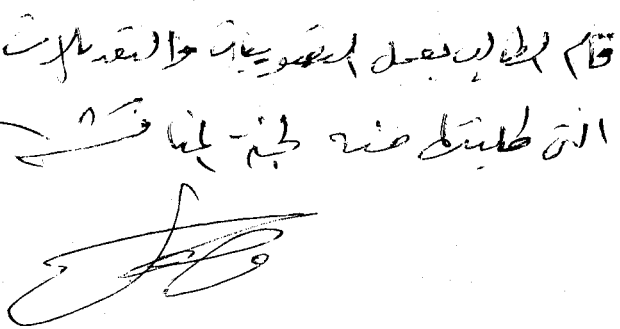 قام الطالب بعمل التصويبات والتعديلات
التى طلبتها منه لجنة المناقشة